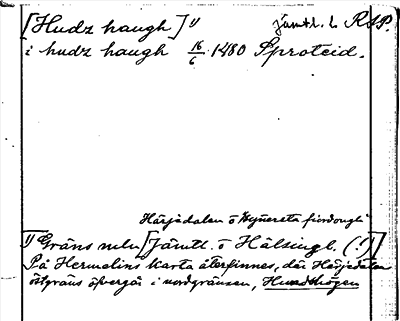 [Hudz haugh] 1) jämtl. l. RAP.
i hudz haugh 16/6 1480 Sproteid.
Härjedalen o
1) Gräns mln [Jämtl. o Hälsingl. (!)]
På Hermelins karta återfinnes, där Härjedalen
östgräns öfvergår i nordgränsen, Hundshögen